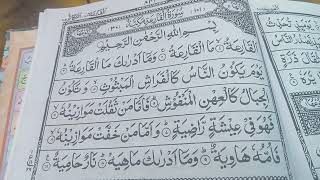 سُوْرَةُ الْقَارِعَةِ مَكِّيَّةٌ
بِسْمِ اللّٰهِ الرَّحْمٰنِ الرَّحِيْمِ
اَلْقَارِعَةُ ۙ مَا الْقَارِعَةُ ۚ وَمَآ اَدْرٰىكَ مَا الْقَارِعَةُ ؕ
يَوْمَ يَكُوْنُ النَّاسُ كَالْفَرَاشِ الْمَبْثُوْثِ ۙ وَتَكُوْنُ
الْجِبَالُ كَالْعِهْنِ الْمَنْفُوْشِ ؕ فَاَمَّا مَنْ ثَقُلَتْ مَوَازِيْنُهٗ ۙ
فَهُوَ فِيْ عِيْشَةٍ رَّاضِيَةٍ ؕ وَاَمَّا مَنْ خَفَّتْ مَوَازِيْنُهٗ ۙ
فَاُمُّهٗ هَاوِيَةٌ ؕ وَمَآ اَدْرٰىكَ مَاهِيَهْ ؕ نَارٌ حَامِيَةٌ